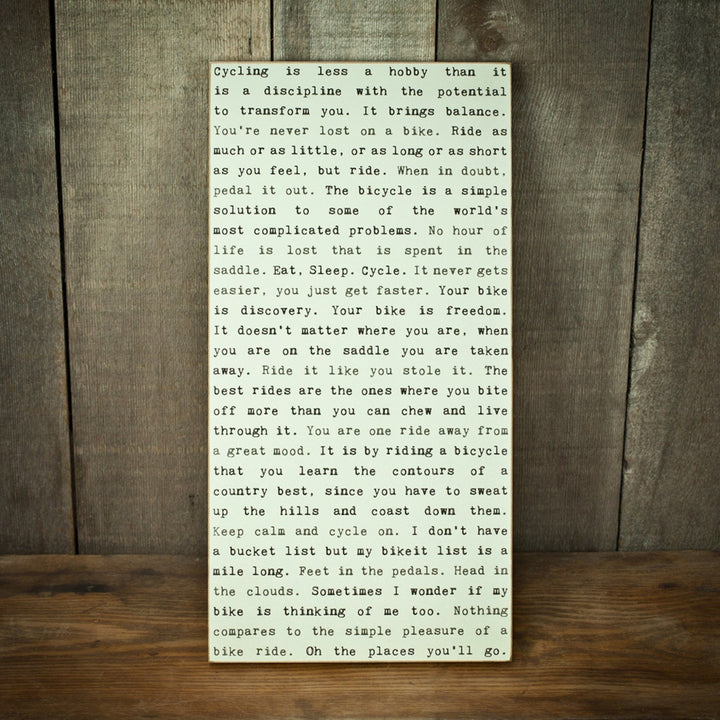 Cycling is less a hobby than it
is a discipline with the potential
to transform you. It brings balance.
You're never lost on a bike. Ride as
much or as little, or as long or as short
as you feel, but ride. When in doubt,
pedal it out. The bicycle is a simple
solution to some of the world's
most complicated problems. No hour of
life is lost that is spent in the
saddle. Eat, Sleep. Cycle. It never gets
easier, you just get faster. Your bike
is discovery. Your bike is freedom.
It doesn't matter where you are, when
you are on the saddle you are taken
away. Ride it like you stole it. The
best rides are the ones where you bite
off more than you can chew and live
through it. You are one ride away from
a great mood. It is by riding a bicycle
that you learn the contours of a
country best, since you have to sweat
up the hills and coast down them.
Keep calm and cycle on. I don't have
a bucket list but my bikeit list is a
mile long. Feet in the pedals. Head in
the clouds. Sometimes I wonder if my
bike is thinking of me too. Nothing
compares to the simple pleasure of a
bike ride. Oh the places you'll go.